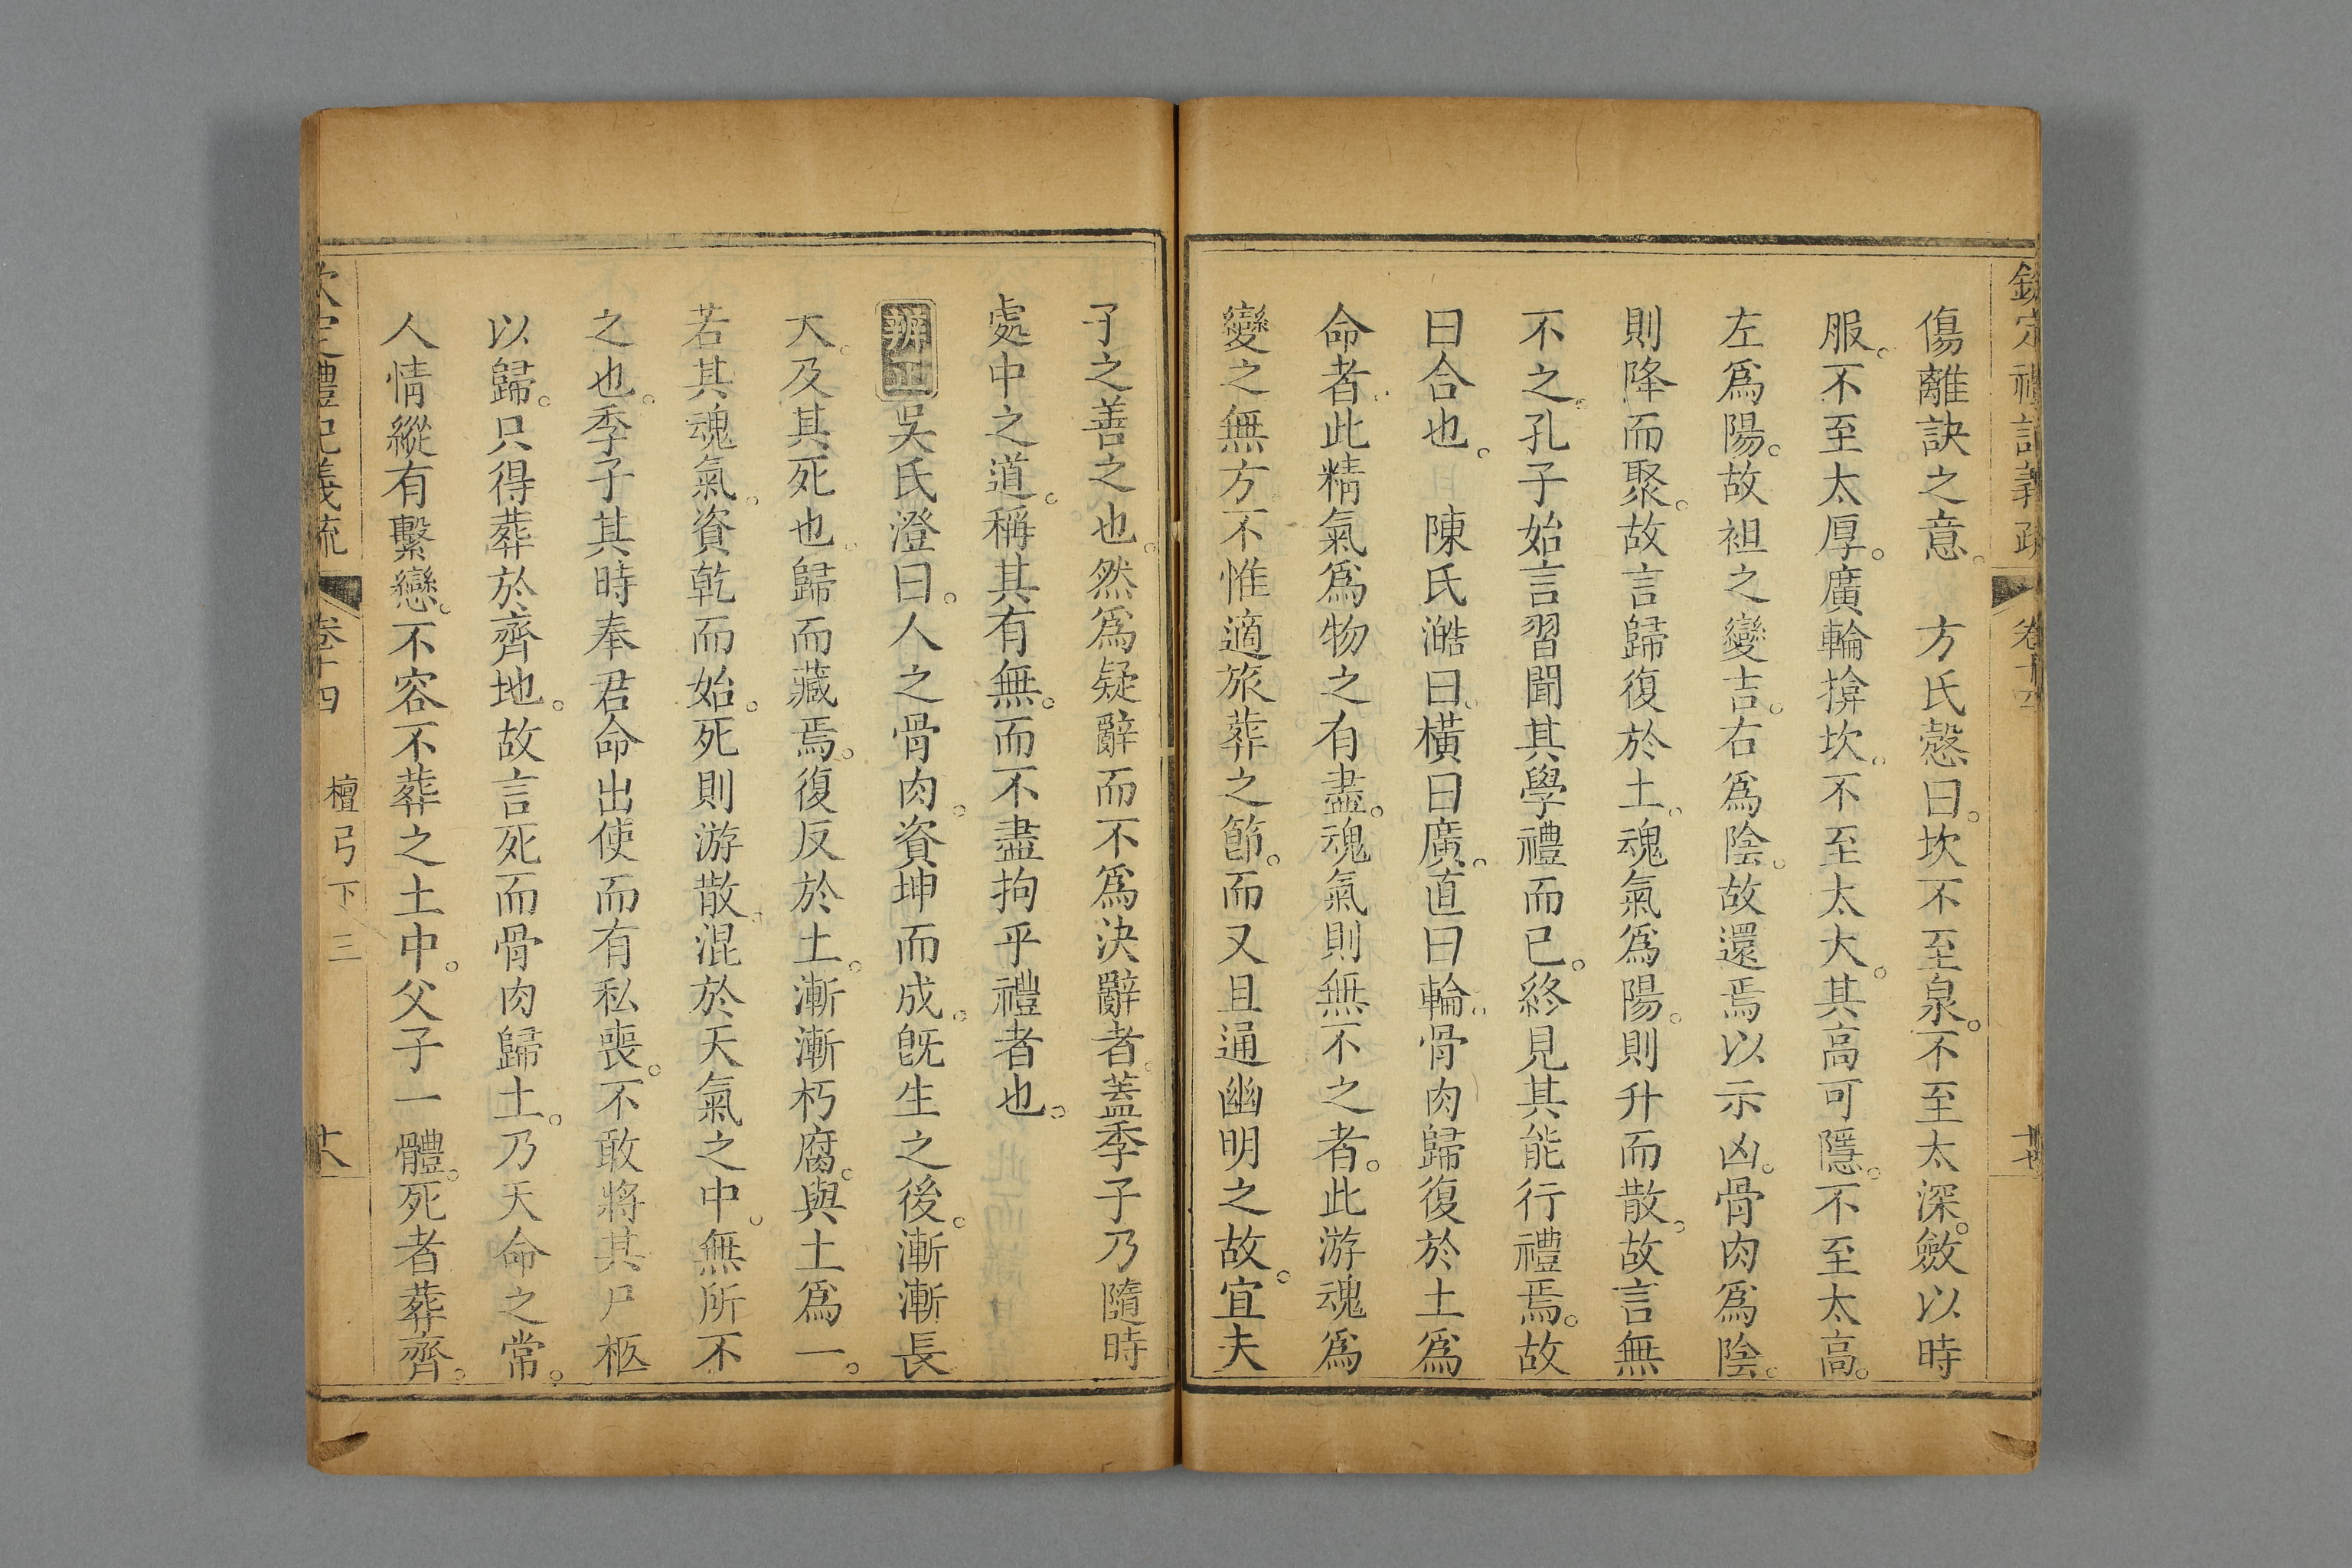 欽定禮記義疏 卷十四 十七
傷離訣之意。 方氏慤曰。坎不至泉。不至太深。斂以時
服。不至太厚。廣輪揜坎。不至太大。其高可隱。不至太高。
左爲陽。故袒之變吉。右爲陰。故還焉以示凶。骨肉爲陰。
則降而聚。故言歸復於土。魂氣爲陽。則升而散。故言無
不之。孔子始言習聞其學禮而已。終見其能行禮焉。故
曰合也。 陳氏澔曰。橫曰廣。直曰輪。骨肉歸復於土爲
命者。此精氣爲物之有盡。魂氣則無不之者。此游魂爲
變之無方。不惟適旅葬之節。而又且通幽明之故。宜夫
子之善之也。然爲疑辭而不爲決辭者。蓋季子乃隨時
處中之道。稱其有無。而不盡拘乎禮者也。
辨正 吳氏澄曰。人之骨肉。資坤而成。旣生之後。漸漸長
大。及其死也。歸而藏焉。復反於土。漸漸朽腐。與土爲一。
若其魂氣。資乾而始。死則游散。混於天氣之中。無所不
之也。季子其時奉君命出使而有私喪。不敢將其尸柩
以歸。只得葬於齊地。故言死而骨肉歸土。乃天命之常。
人情縱有繫戀。不容不葬之土中。父子一體。死者葬齊。
欽定禮記義疏 卷十四 檀弓下 三 十八